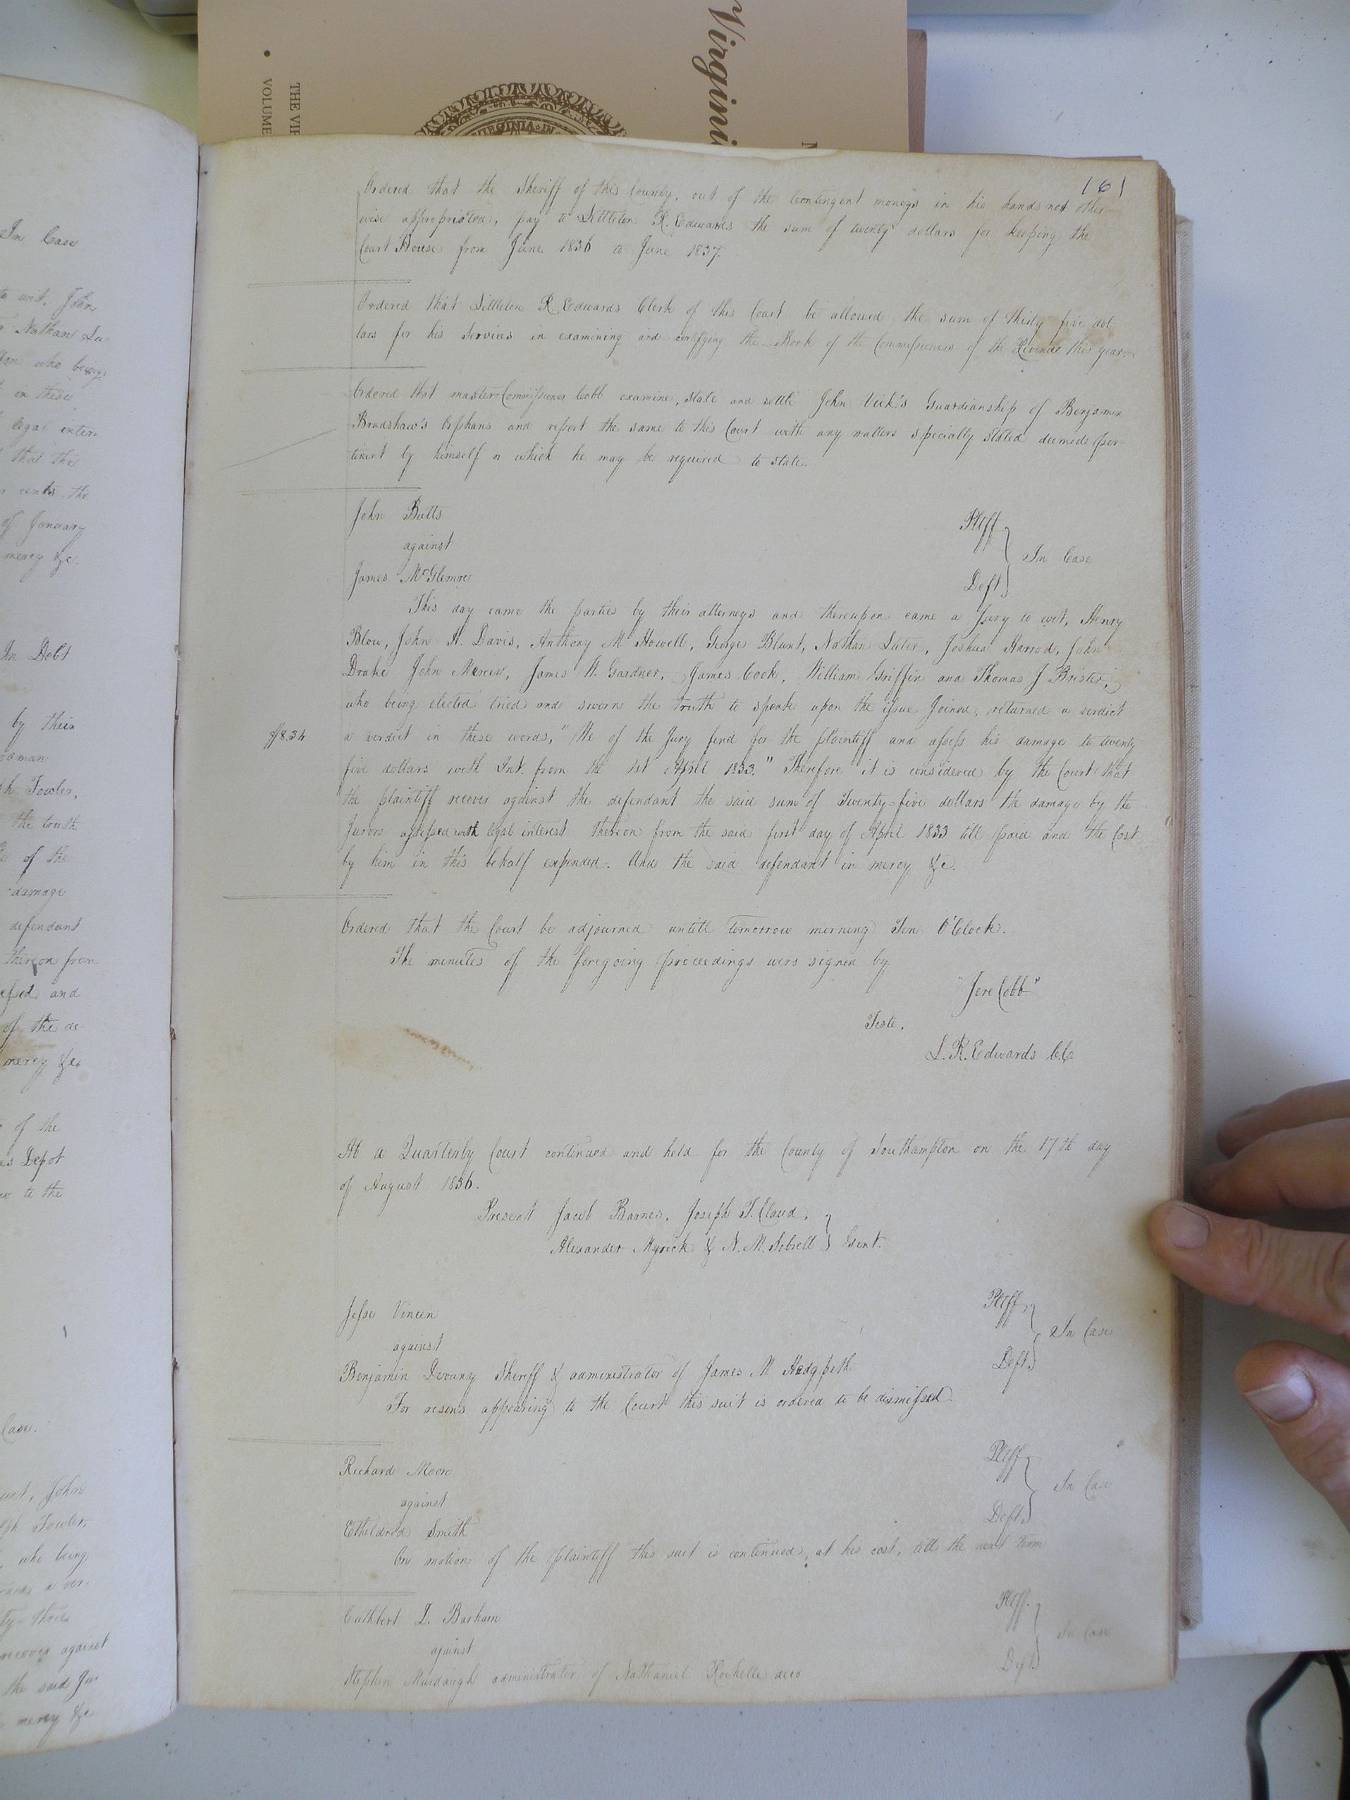 Virgini
THE VIR
VOLUME
VIRGINIA IN
161
Ordered that the Sheriff of this County, out of the Contingent moneys in his hands not other
wise appropriated, pay to Littleton R. Edwards the sum of twenty dollars for keeping the
Court House from June 1836 to June 1837.
Ordered that Littleton R Edwards Clerk of this Court be allowed the sum of thirty five dol
lars for his Services in examining and certifying the Book of the Commissioners of the Revenue this year
Ordered that master Commissioner Cobb examine, state and settle John Vick's Guardianship of Benjamin
Bradshaw's Orphans and report the same to this Court with any matters specially stated deemed per-
tinent by himself or which he may be required to state.
John Butts Pltff
against In Case
James McGlemre Deft
This day came the parties by their attorneys and thereupon came a Jury to wit, Henry
Blow, John H. Davis, Anthony M Howell, George Blunt, Nathan Luter, Joshua Harrod, John
Drake John Mercer, James W. Gardner, James Cook, William Griffin and Thomas J Brister,
who being elected tried and sworn the truth to speak upon the issue Joined, returned a verdict
a verdict in these words, "We of the Jury find for the plaintiff and assess his damage to twenty
five dollars with Int. from the 1st April 1833." Therefore it is considered by the Court that
the plaintiff recover against the defendant the said sum of Twenty-five dollars the damage by the
Jurors assessed with legal interest thereon from the said first day of April 1833 till paid and the Cost
by him in this behalf expended. And the said defendant in mercy &c.
Ordered that the Court be adjourned untill tomorrow morning Ten O'Clock.
The minutes of the foregoing proceedings were signed by
"Jere Cobb"
Teste.
L. R. Edwards CC
At a Quarterly Court continued and held for the County of Southampton on the 17th day
of August 1836.
Present Jacob Barnes, Joseph T. Claud,
Alexander Myrick & N. M. Sebrell Gent.
Jesse Vincen Pltff
against In Case
Benjamin Devany Sheriff & administrator of James M Hedgpeth Deft
For resons appearing to the Court this suit is ordered to be dismissed.
Richard Moore Pltff
against In Case
Etheldred Smith Deft
On motion of the plaintiff this suit is continued, at his cost, till the next Term
Cuthbert L. Barham Pltff.
against In Case
Stephen Murdaugh administrator of Nathaniel Rochelle decd Deft